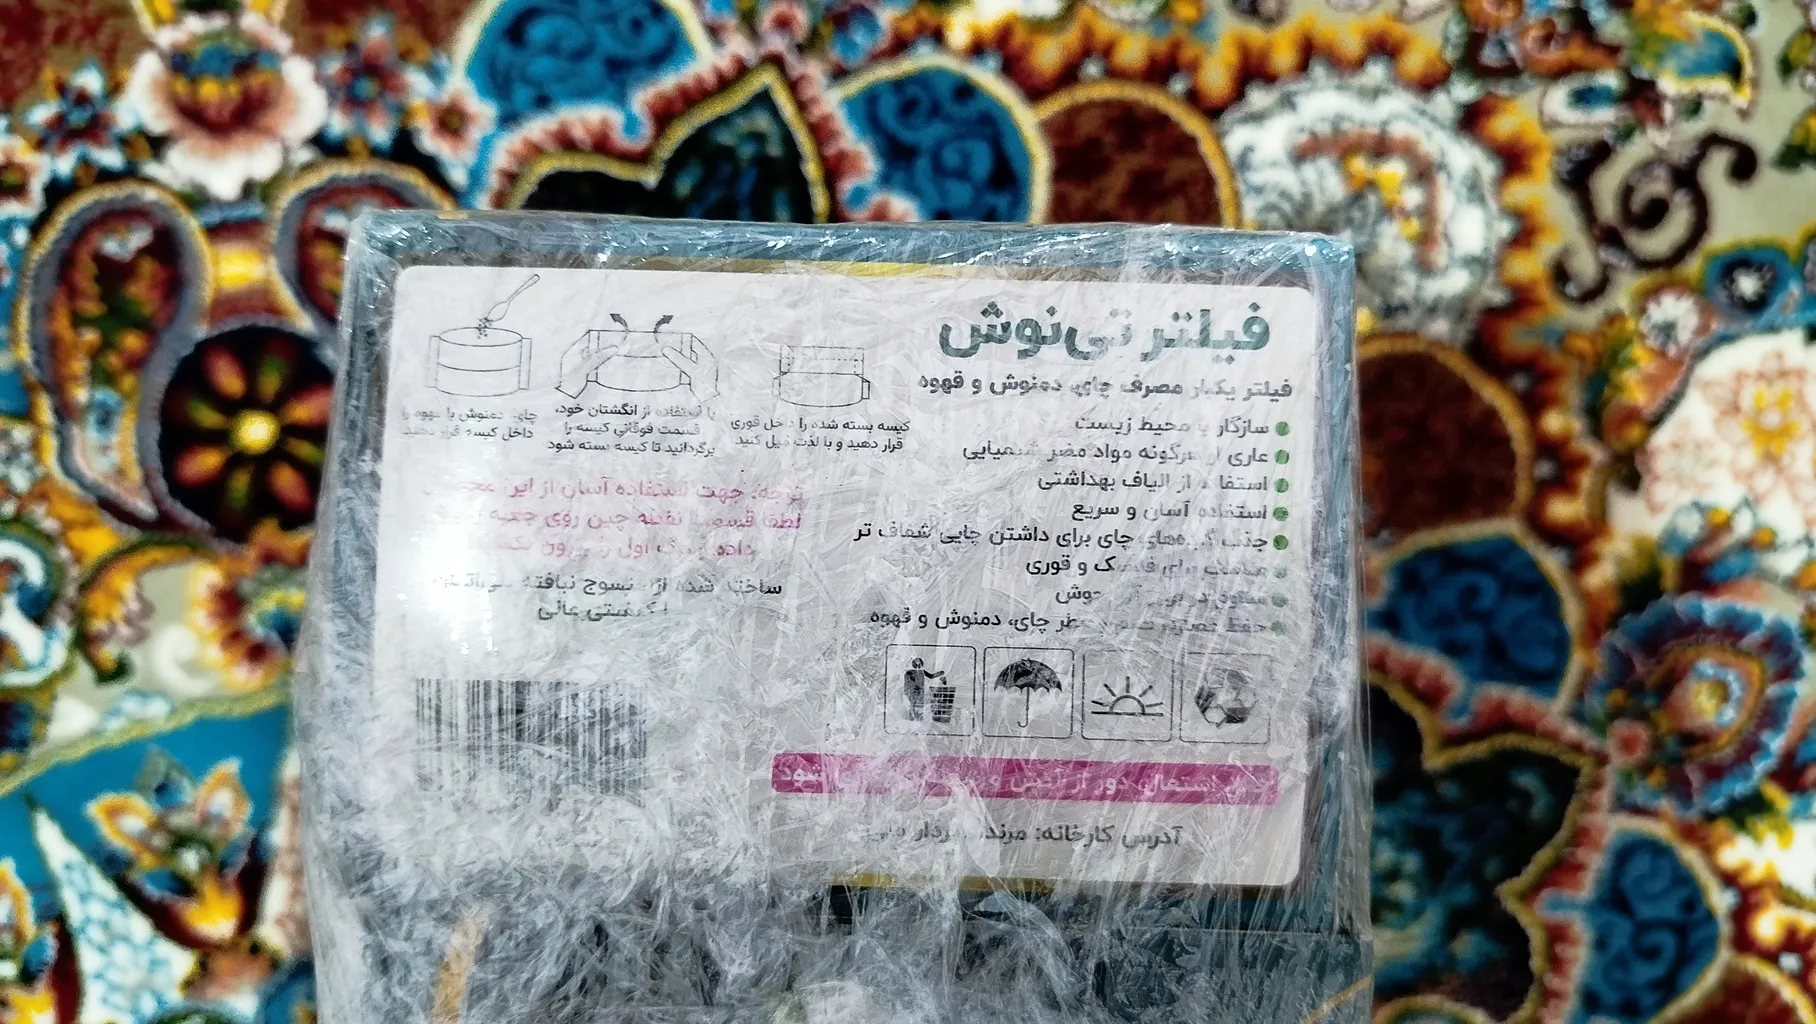 فیلتر تی‌نوش
فیلتر یکبار مصرف چای، دمنوش و قهوه
سازگار با محیط زیست
عاری از هرگونه مواد مضر شیمیایی
استفاده از الیاف بهداشتی
استفاده آسان و سریع
جذب چای برای داشتن چایی شفاف تر
مناسب برای و قوری
مقاوم در جوش
حفظ عطر چای، دمنوش و قهوه
چای، دمنوش یا قهوه را
داخل کیسه قرار دهید
با استفاده از انگشتان خود،
قسمت فوقانی کیسه را
برگردانید تا کیسه بسته شود
کیسه بسته شده را داخل قوری
قرار دهید و با لذت میل کنید
توجه: جهت استفاده آسان از این
لطفا قسمت نقطه چین روی جعبه
داده اول را بیرون
ساخته شده از نسوج نبافته
اشتعال، دور از آتش و شود
آدرس کارخانه: مرند،